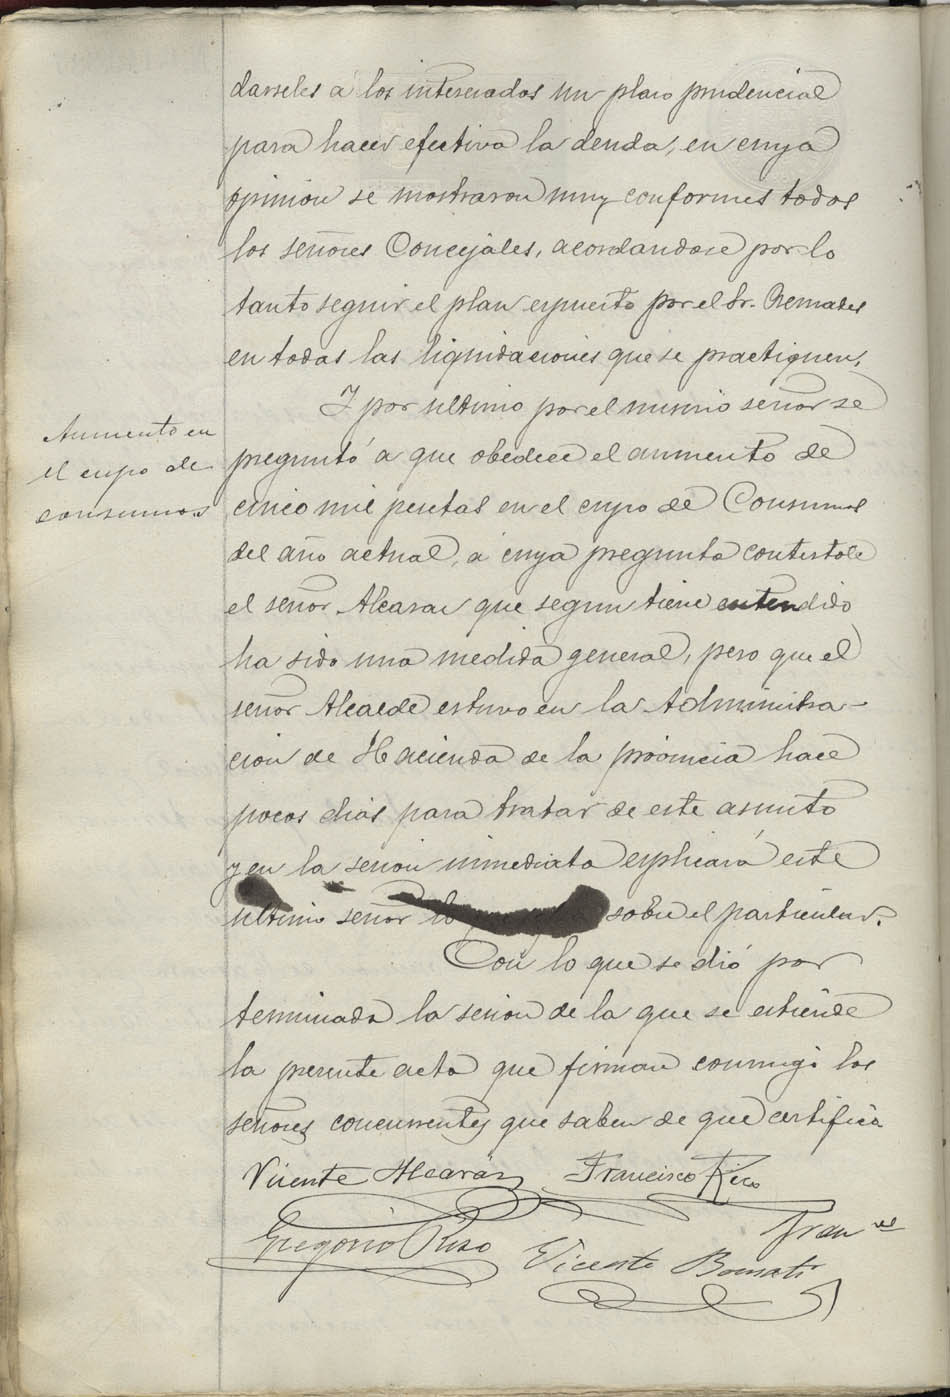 darseles a los interesados un plazo prudencial
para hacer efectiva la deuda, en cuya
opinion se mostraron muy conformes todos
los señores Concejales, acordandose por lo
tanto seguir el plan espuesto por el Sr.
en todas las liquidaciones que se practiquen.
Y por ultimo por el mismo señor se
Aumento en
el cupo de
consumos
preguntó a que obedece el aumento de
cinco mil pesetas en el cupo de Consumos
del año actual, á cuya pregunta contestole
el señor Alcaraz que segun tiene entendido
ha sido una medida general, pero que el
señor Alcalde estuvo en la Administra-
cion de Hacienda de la provincia hace
pocos dias para tratar de este asunto
y en la sesion inmediata esplicará este
ultimo señor lo sobre el particular.
Con lo que se dió por
terminada la sesion de la que se estiende
la presente acta que firman conmigo los
señores concurrentes que saben de que certifico
Vicente Alcaráz Francisco Rico
Gregorio Rizo Vicente Bernabé